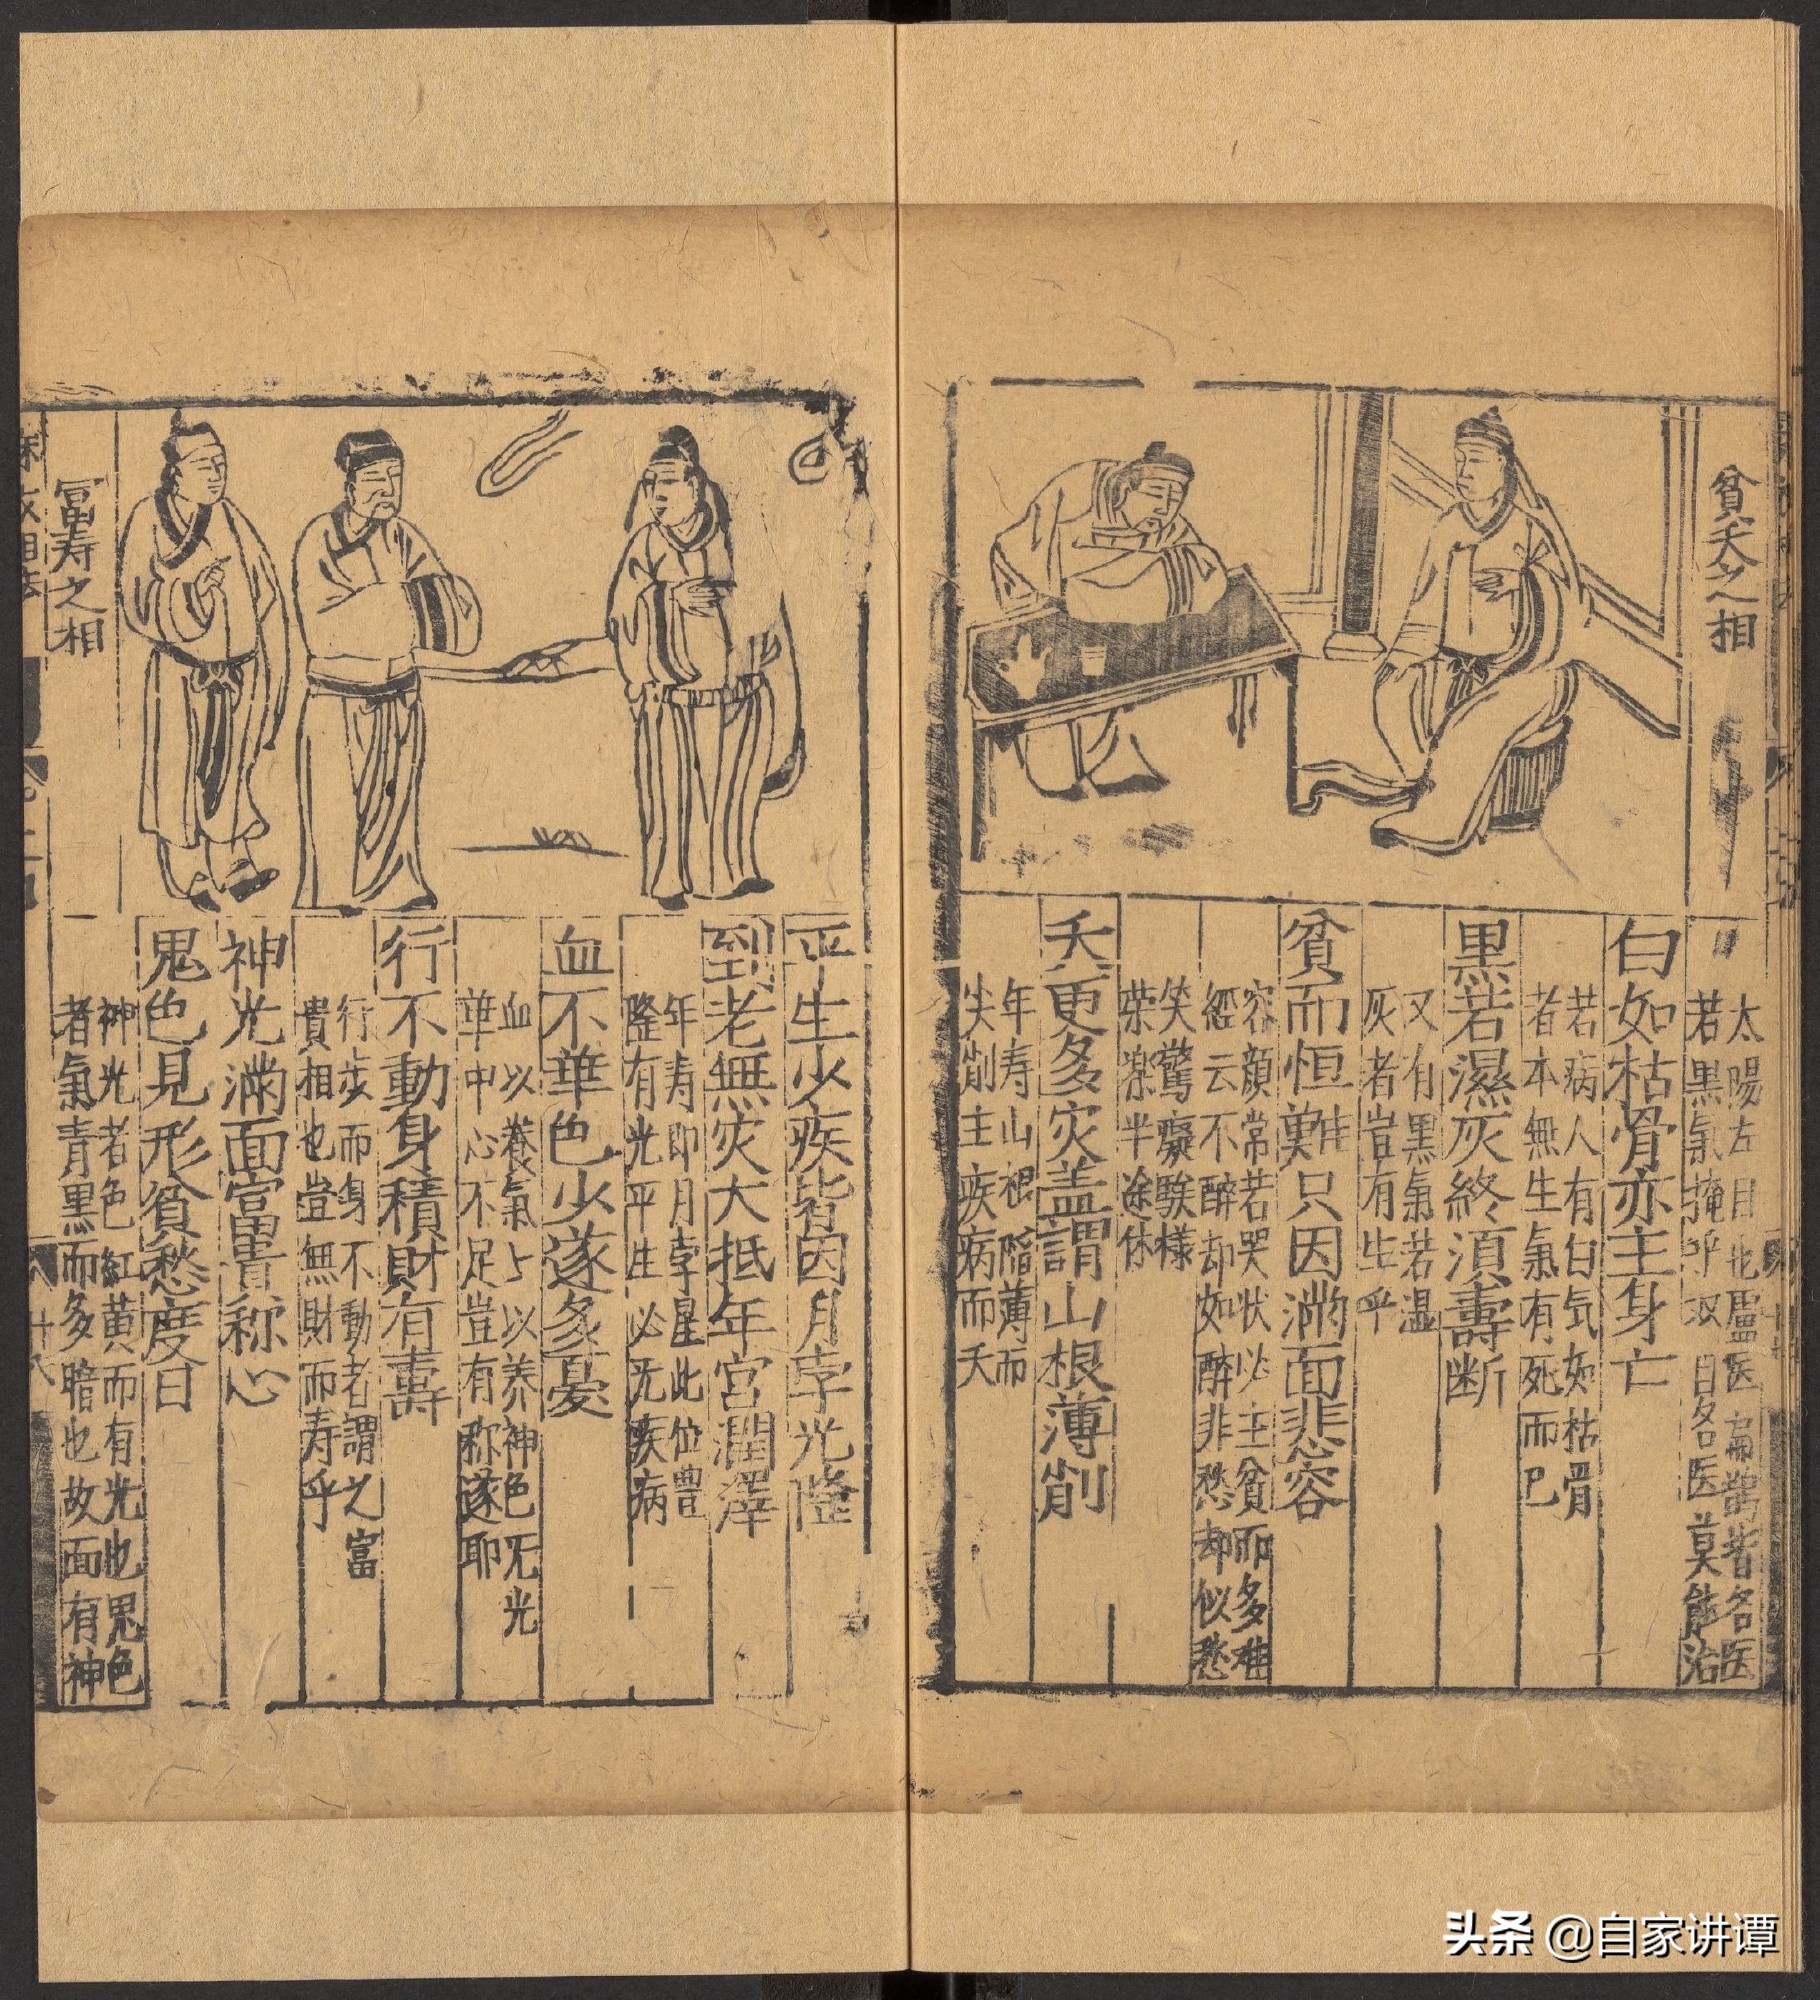 貧夭之相
太陽左目也盧医扁鵲皆名医
若黒氣掩乎双目名医莫能治
白如枯骨亦主身亡
若病人有白气如枯骨
者本無生氣有死而已
黒若濕灰終湏壽断
又有黒氣若湿
灰者豈有生乎
貧而恒難只因滿面悲容
容顔常若哭状必主貧而多难
經云不醉却如醉非愁却似愁
笑驚癡騃様
荣樂半途休
夭更多灾盖謂山根薄削
年寿山根陷薄而
尖削主疾病而夭
平生少疾皆因月孛光隆
到老無灾大抵年宮潤澤
年寿即月孛星此位豊
隆有光平生必无疾病
血不華色少遂多憂
血以養氣以养神色无光
華中心不足豈有称遂耶
行不動身積財有壽
行歩而身不動者謂之富
貴相也豈無財而寿乎
神光滿面富貴称心
鬼色見形貧愁度日
神光者色紅黄而有光也鬼色
者氣青黒而多暗也故面有神
冨寿之相
十八
头条 @自家讲谭